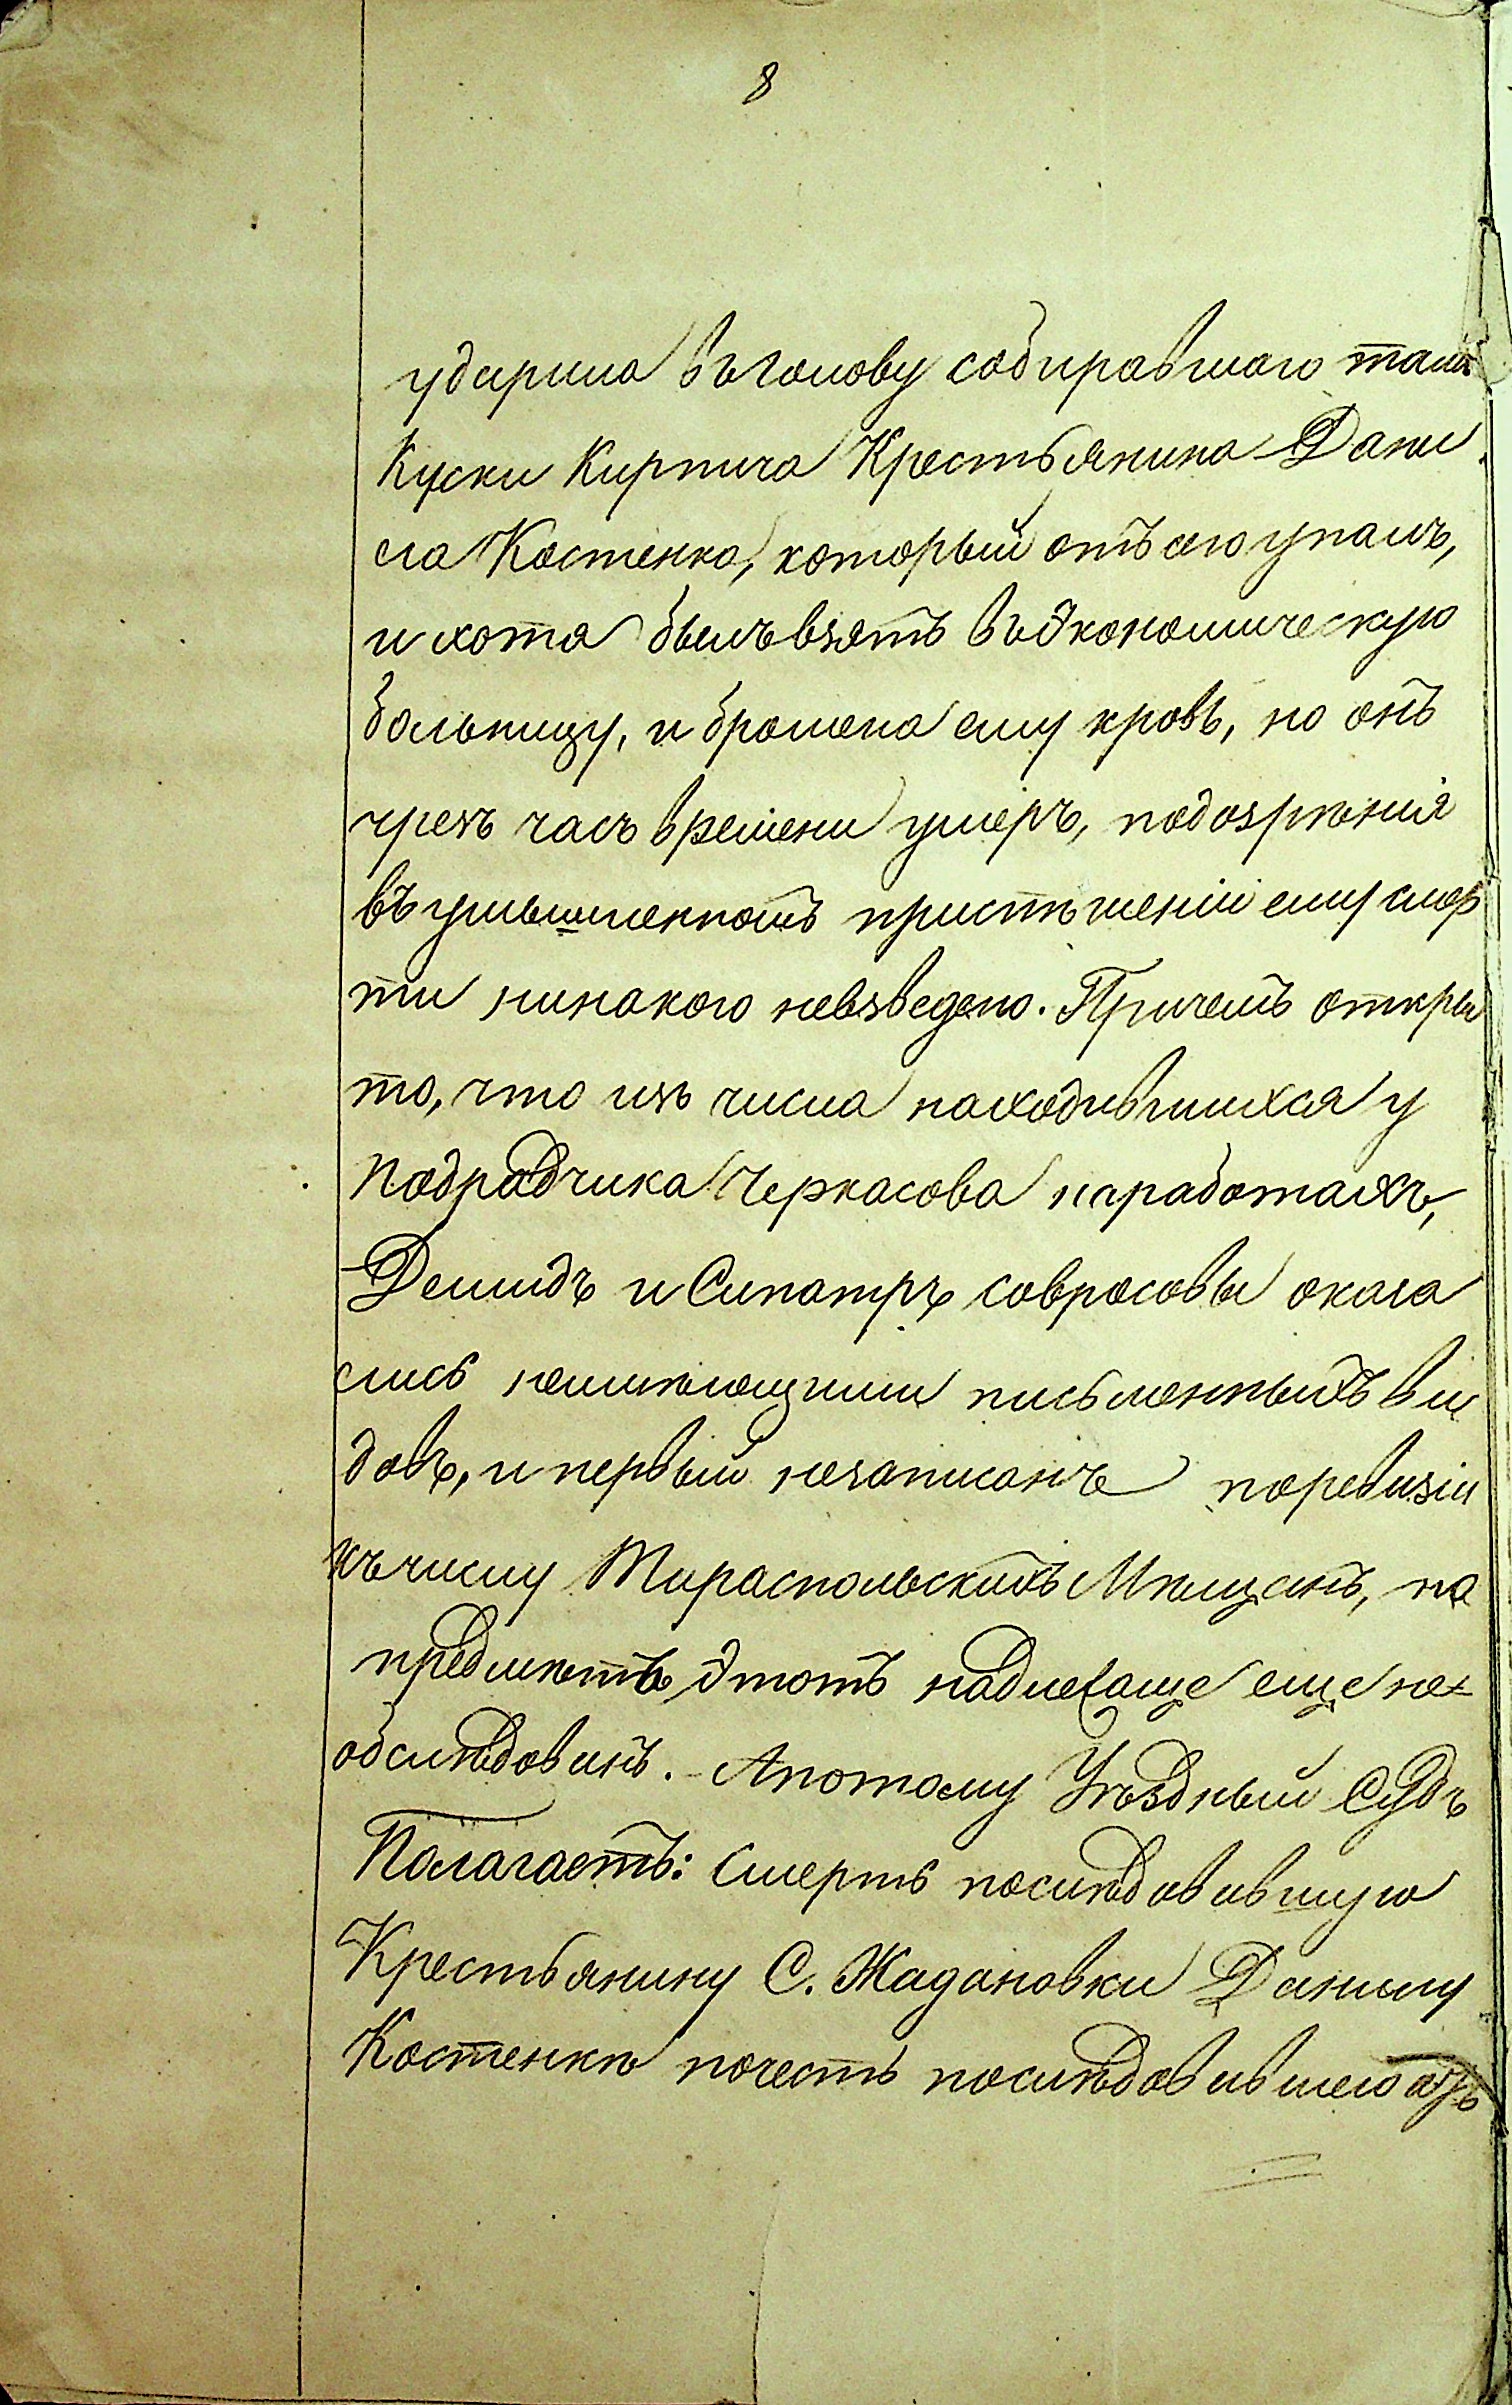 8
ударила въ голову собиравшаго тамъ
куски кирпича Крестьянина Дани
ла Костенка, который отъ сего упалъ,
и хотя былъ взятъ въ Экономическую
больницу, и брошена ему кровь, но онъ
чрезъ часъ времени умеръ, подозрѣнія
въ умышленномъ пристѣженіи ему смер
ти никакого невзведено. Причемъ откры
то, что изъ числа находившихся у
подрадчика Черкасова на работахъ,
Демидъ и Сипатръ Соврасовы оказа
лись неимѣющими письменныхъ ви
довъ, и первый незаписанъ по ревизіи
къ числу Тираспольскихъ Мѣщанъ, но
предметъ этотъ надлежаще еще не
обслѣдованъ. А потому Уѣздный Судъ
Полагаетъ: Смерть послѣдовавшую
Крестьянину С. Ждановки Данилу
Костенкѣ почесть послѣдовавшею отъ